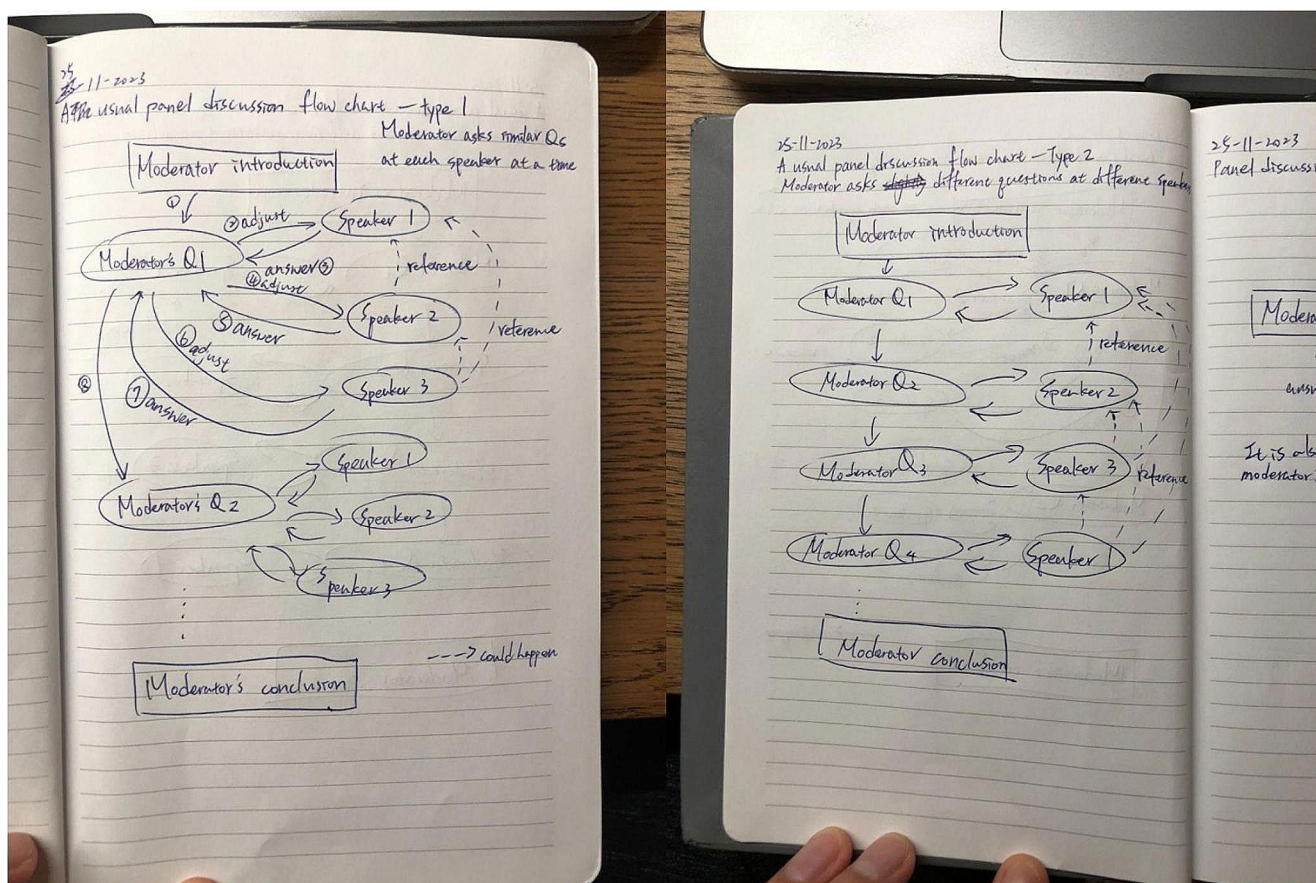 25
-11-2023
A usual panel discussion flow chart — type 1
Moderator asks similar Qs
at each speaker at a time
Moderator introduction
①
② adjust
Speaker 1
Moderator's Q1
answer ③
④ adjust
reference
Speaker 2
⑤ answer
reference
⑥ adjust
Speaker 3
⑧
⑦ answer
Speaker 1
Moderator's Q2
Speaker 2
Speaker 3
---> could happen
Moderator's conclusion
25-11-2023
A usual panel discussion flow chart — Type 2
Moderator asks different questions at different
Moderator introduction
Moderator Q1
Speaker 1
reference
Moderator Q2
Speaker 2
Moderator Q3
Speaker 3
reference
Moderator Q4
Speaker 1
Moderator conclusion
25-11-2023
Panel
It is